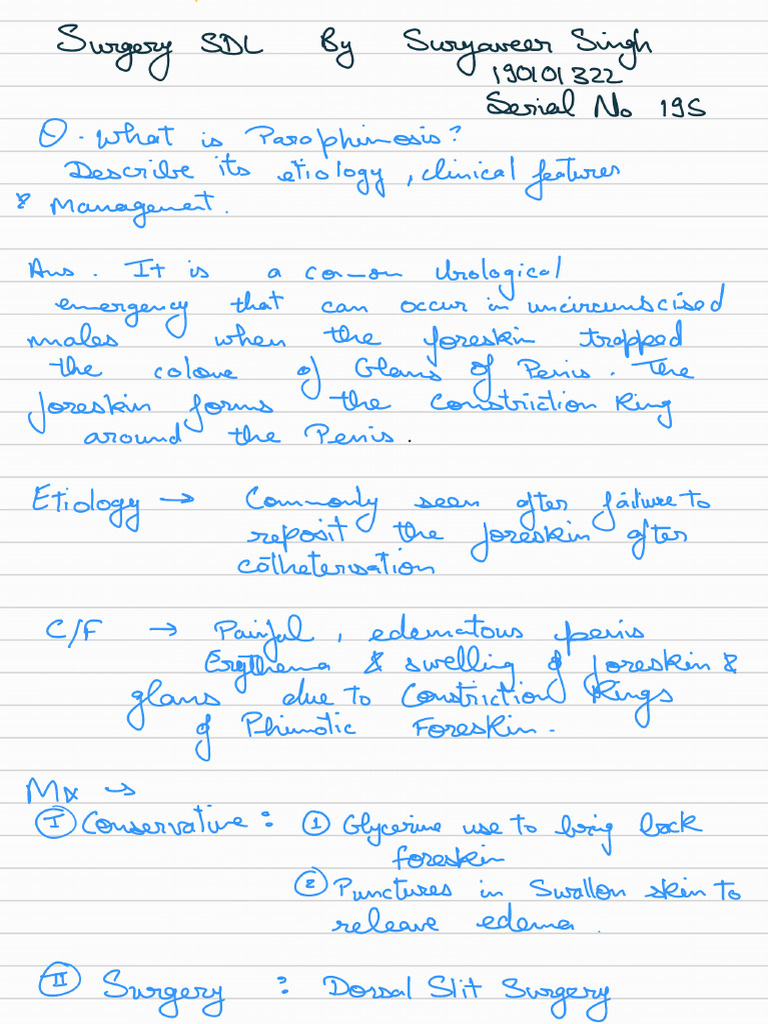 Surgery SDL By Suryaveer Singh
190101322
Serial No 195
Q. What is Paraphimosis?
Describe its etiology, clinical features
& Management.
Ans. It is a common Urological
emergency that can occur in uncircumscised
males when the foreskin trapped
the colone of Glans of Penis. The
foreskin forms the Constriction Ring
around the Penis.
Etiology → Commonly seen after failure to
reposit the foreskin after
catheterisation
C/F → Painful, edematous penis
Erythema & swelling of foreskin &
glans due to Constriction Rings
of Phimotic Foreskin.
Mx →
I Conservative : 1 Glycerine use to bring back
foreskin
2 Punctures in Swallon skin to
releave edema.
II Surgery : Dorsal Slit Surgery